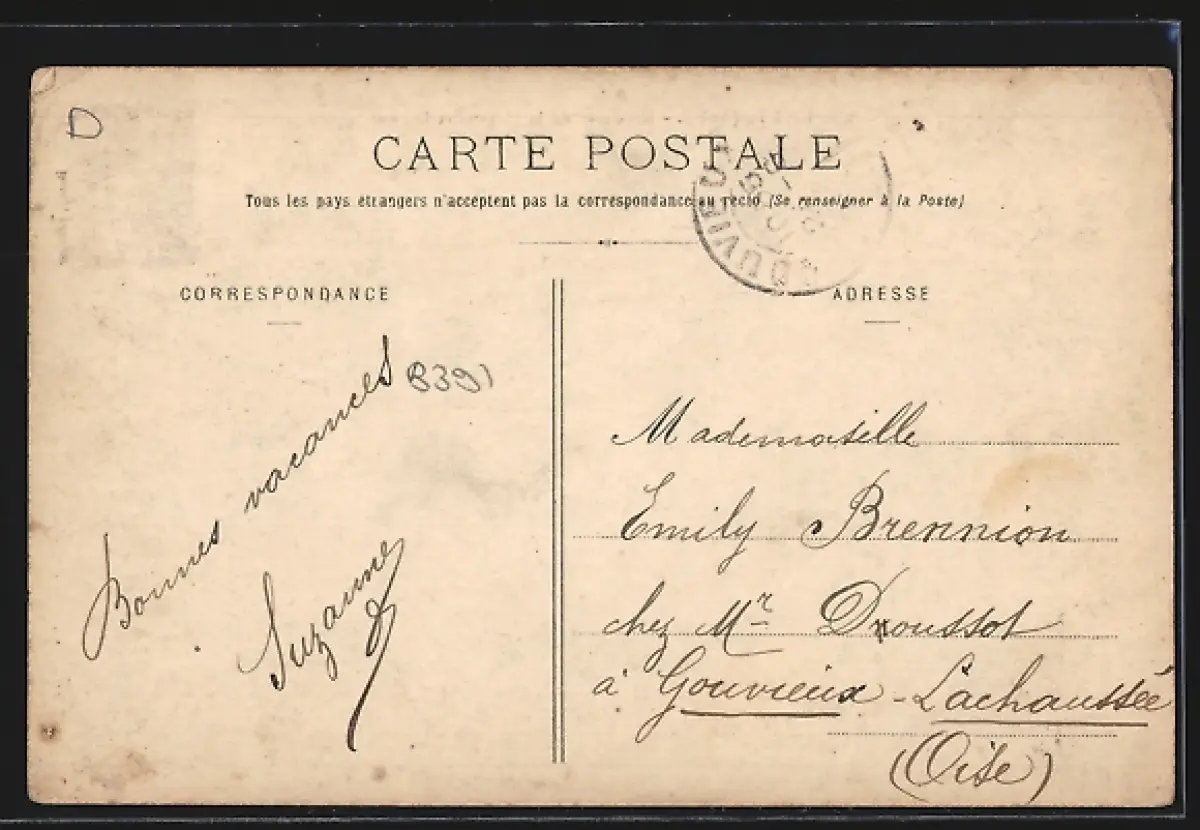 D
CARTE POSTALE
Tous les pays étrangers n'acceptent pas la correspondance au recto (Se renseigner à la Poste)
CORRESPONDANCE
Bonnes vacances
8391
Suzanne
GOUVIEUX
ADRESSE
Mademoiselle
Emily Brennion
chez Mr Droussot
à Gouvieux - Lachaussée
(Oise)